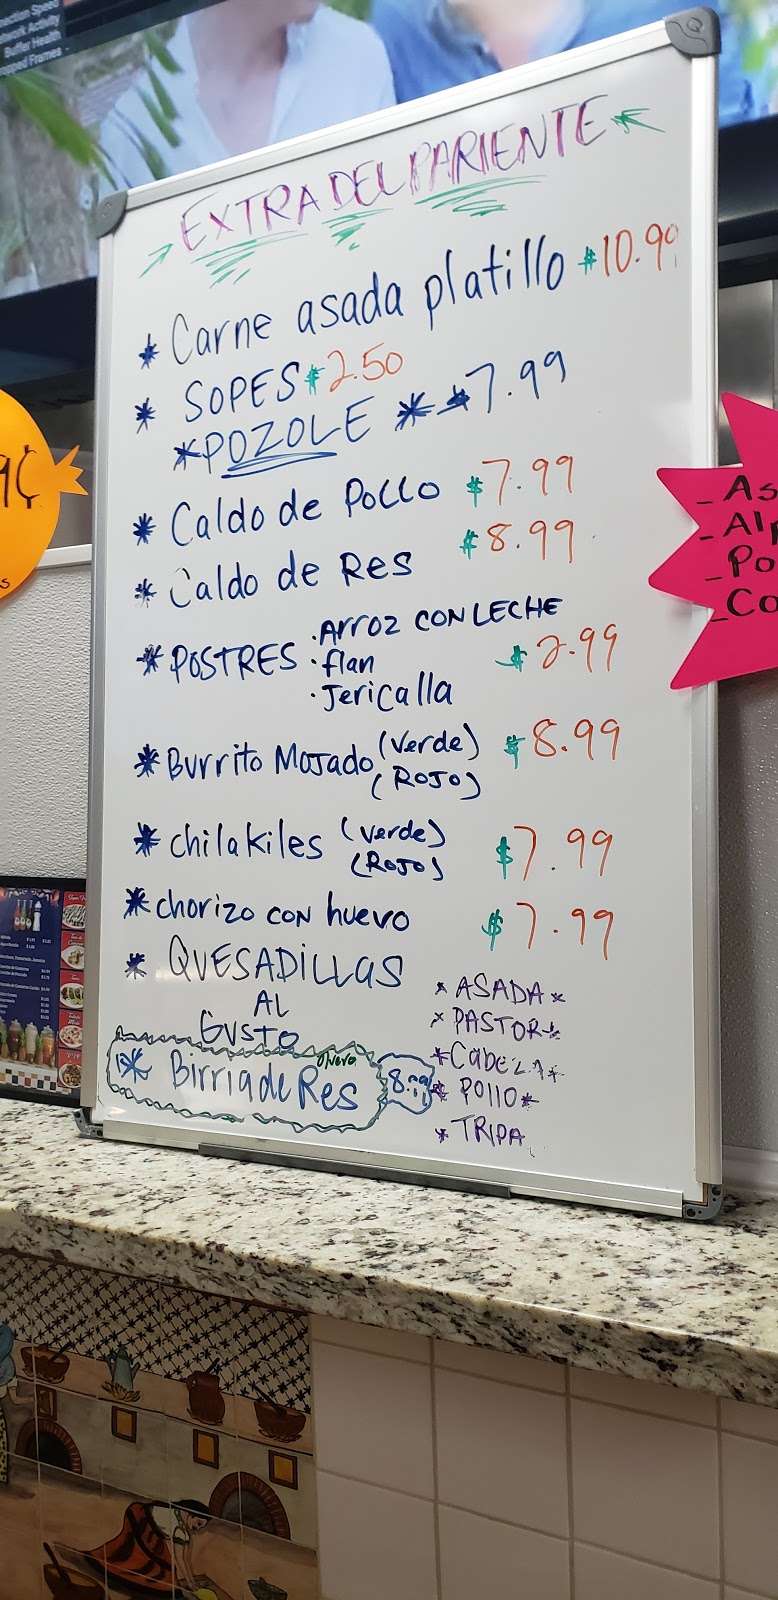 Buffer Health
EXTRA DEL PARIENTE
* Carne asada platillo $10.99
* SOPES $2.50
*POZOLE * 7.99
* Caldo de Pollo $7.99
* Caldo de Res $8.99
* POSTRES · Arroz CON LECHE $2.99
· flan
· Jericalla
* Burrito Mojado (Verde) $8.99
(ROJO)
* chilakiles (verde) $7.99
(ROJO)
* chorizo con huevo $7.99
* QUESADILLAS
AL
GUSTO
* ASADA *
* PASTOR *
* Cabeza *
* Pollo *
* TRIPA
* Birria de Res Nuevo 8.99
9¢
- As
- Al
- Po
- Co